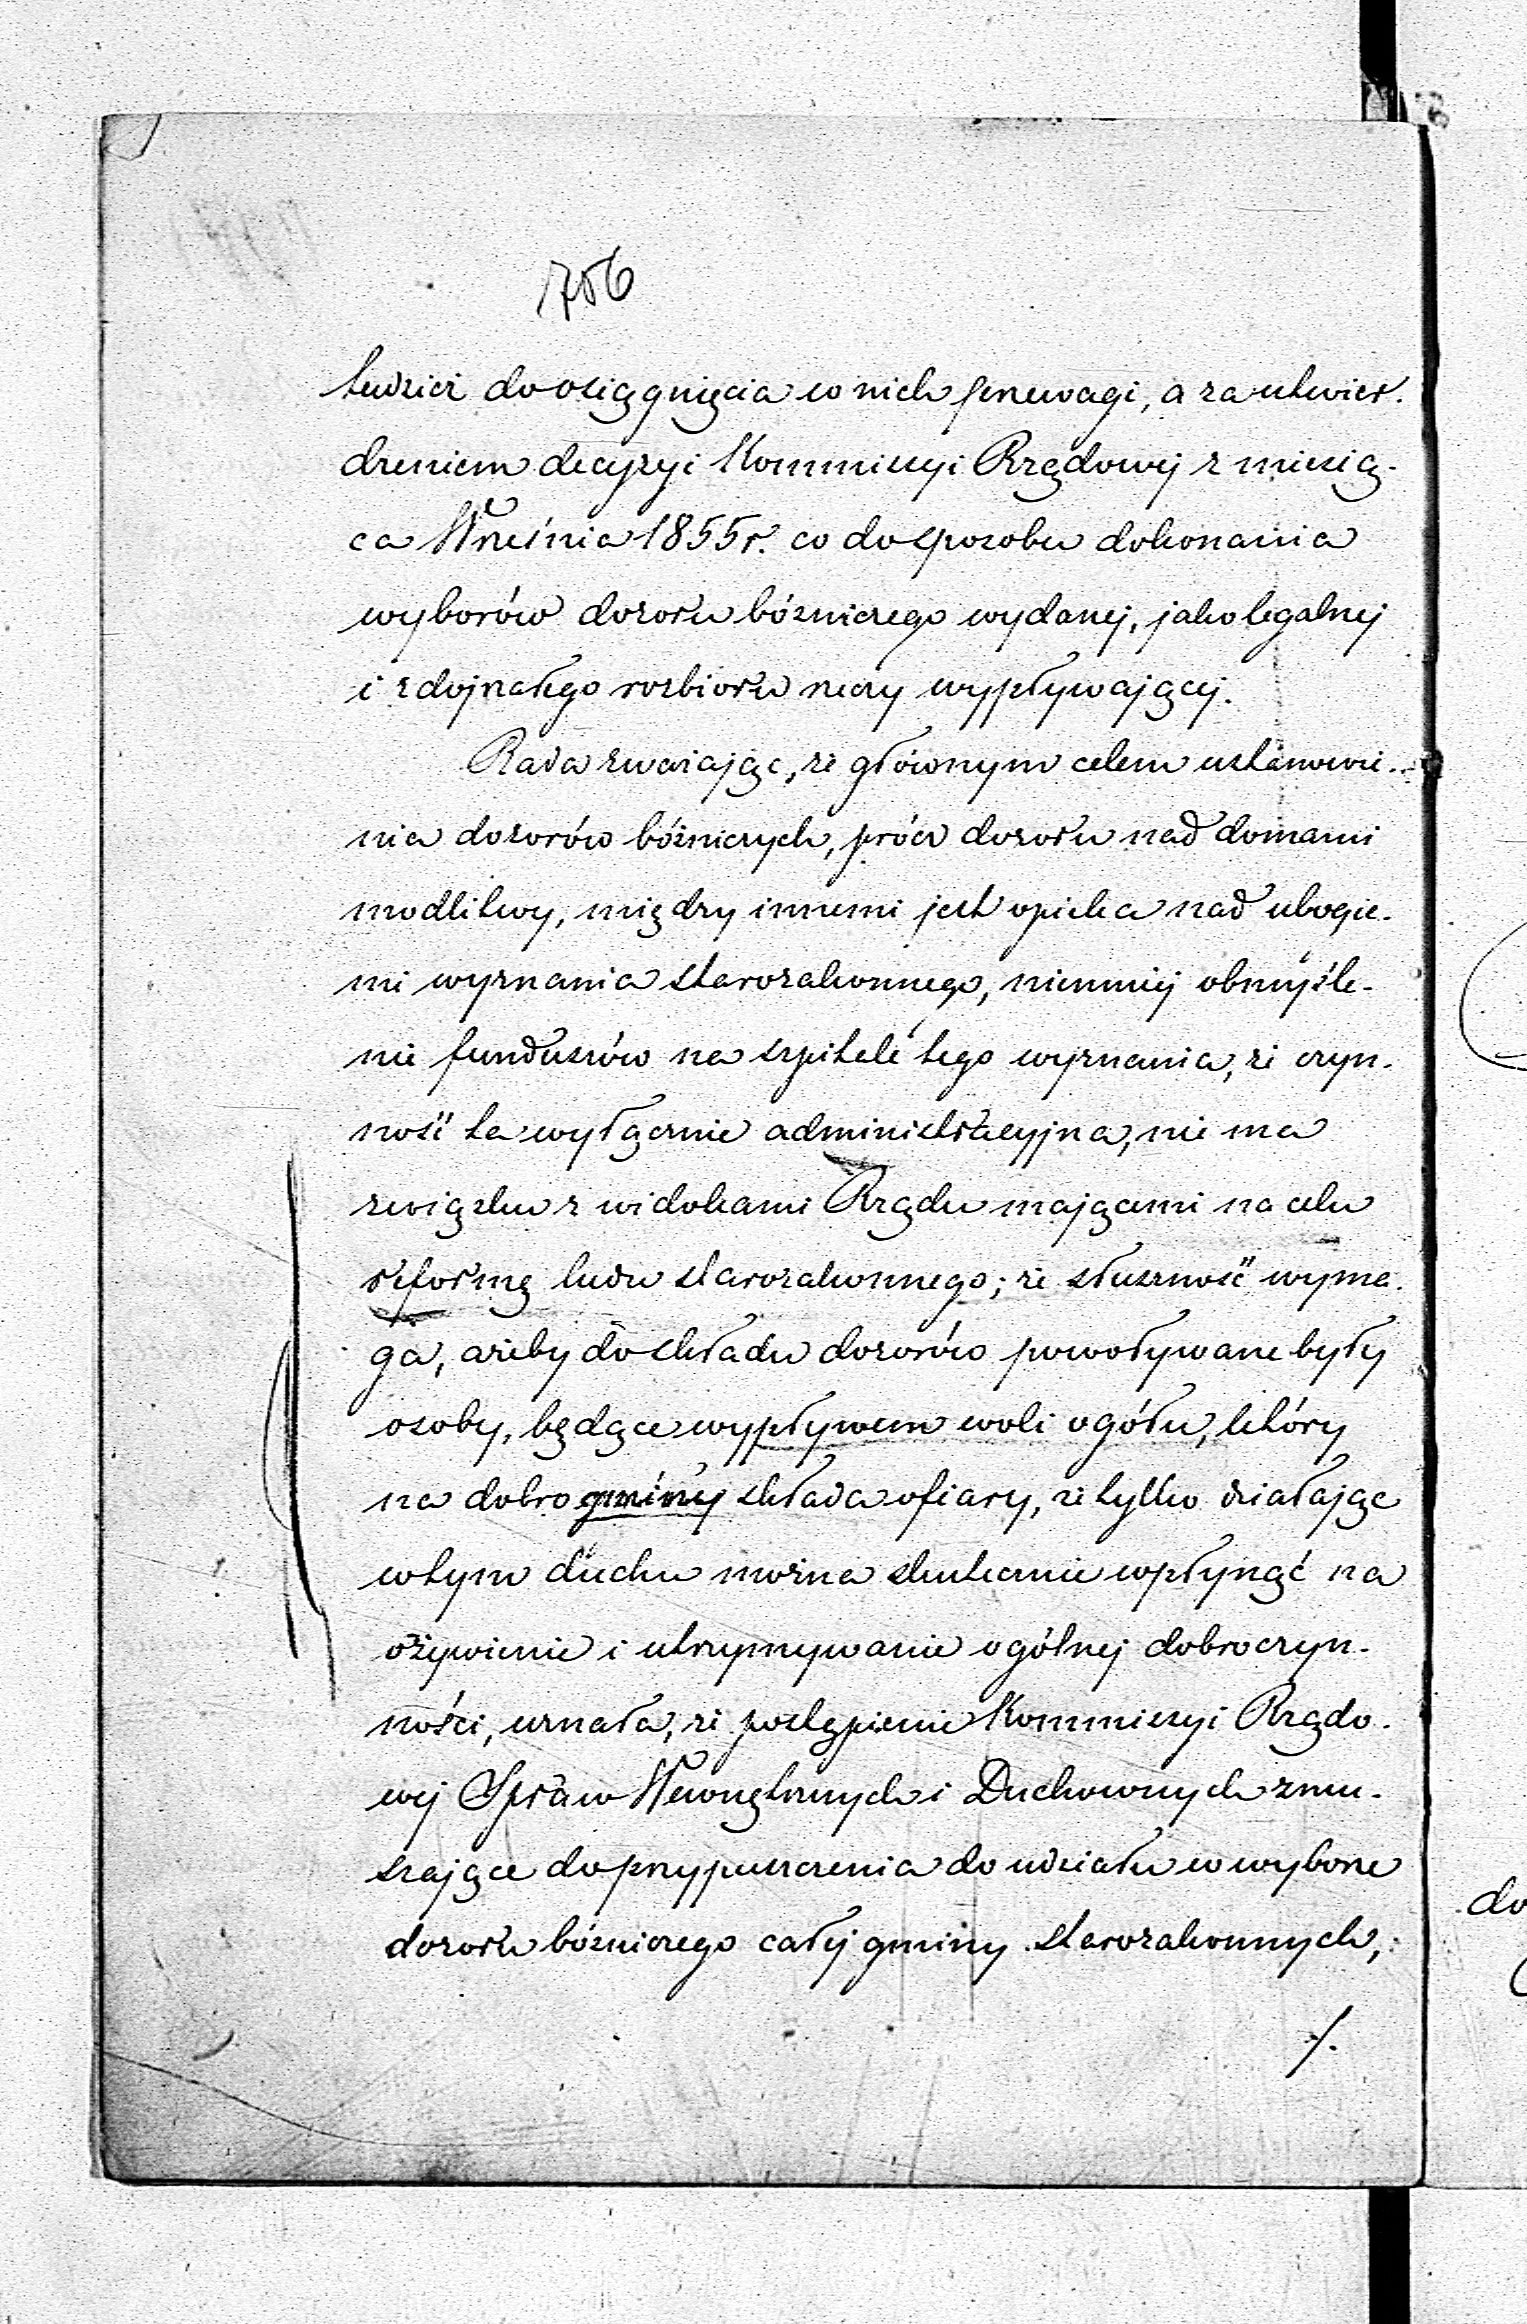 756
tudzież do osiągnięcia w nich przewagi, a za utwier-
dzeniem decyzyi Kommissyi Rządowej z miesią-
ca Września 1855 r. co do sposobu dokonania
wyborów dozoru bóżniczego wydanej, jako legalnej
i z dojrzałego rozbioru rzeczy wypływającej.
Rada zważając, że głównym celem ustanowie-
nia dozorów bóżniczych, prócz dozoru nad domami
modlitwy, między innemi jest opieka nad ubogie-
mi wyznania starozakonnego, niemniej obmyśle-
nie funduszów na szpitale tego wyznania, że czyn-
ność ta wyłącznie administracyjna, nie ma
związku z widokami Rządu mającemi na celu
reformę ludu starozakonnego; że słuszność wyma-
ga, ażeby do składu dozorów powoływane były
osoby, będące wypływem woli ogółu, który
na dobro gminy składa ofiary, że tylko działając
w tym duchu można skutecznie wpłynąć na
ożywienie i utrzymywanie ogólnej dobroczyn-
ności, uznała, że postąpienie Kommissyi Rządo-
wej Spraw Wewnętrznych i Duchownych zmu-
szające do przypuszczenia do udziału w wyborze
dozoru bóżniczego całej gminy starozakonnych,
./.
do